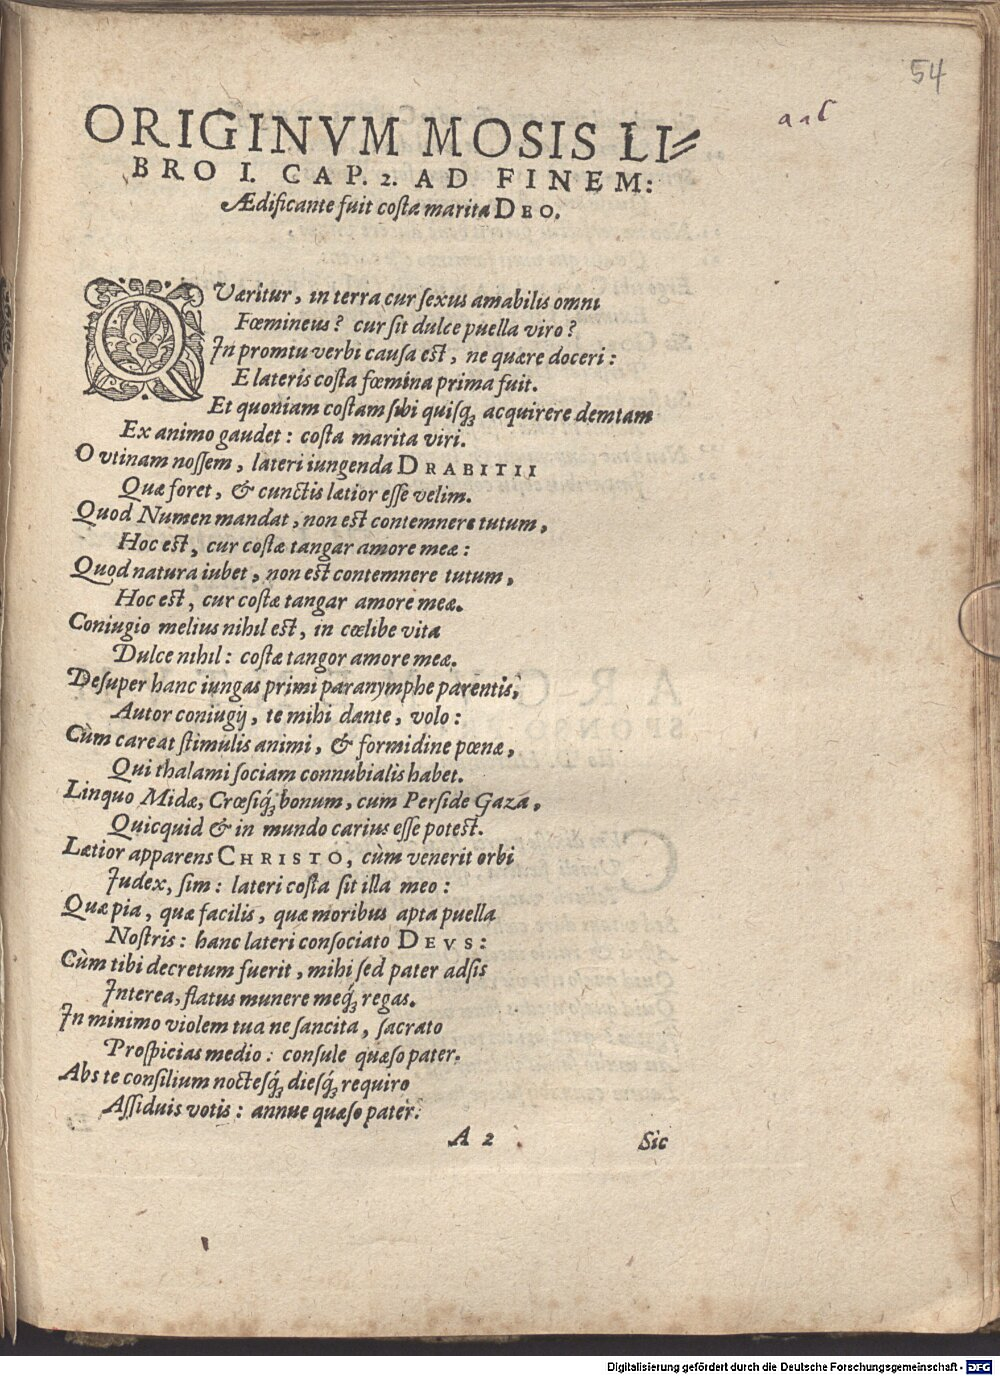 54
ORIGINVM MOSIS LI⸗
BRO I. CAP. 2. AD FINEM:
Ædificante fuit coſta marita DEO.
QVæritur, in terra cur ſexus amabilis omni
Fœmineus? cur ſit dulce puella viro?
In promtu verbi cauſa est, ne quære doceri:
E lateris coſta fœmina prima fuit.
Et quoniam coſtam ſibi quiſq́ꝫ acquirere demtam
Ex animo gaudet: coſta marita viri.
O vtinam noſſem, lateri iungenda DRABITII
Quæ foret, & cunctis lætior eſſe velim.
Quod Numen mandat, non est contemnere tutum,
Hoc est, cur coſtæ tangar amore meæ:
Quod natura iubet, non est contemnere tutum,
Hoc est, cur coſtæ tangar amore meæ.
Coniugio melius nihil est, in cœlibe vita
Dulce nihil: coſtæ tangor amore meæ.
Deſuper hanc iungas primi paranymphe parentis,
Autor coniugij, te mihi dante, volo:
Cùm careat ſtimulis animi, & formidine pœnæ,
Qui thalami ſociam connubialis habet.
Linquo Midæ, Crœſiq́ꝫ bonum, cum Perſide Gaza,
Quicquid & in mundo carius eſſe potest.
Lætior apparens CHRISTO, cùm venerit orbi
Iudex, ſim: lateri coſta ſit illa meo:
Quæ pia, quæ facilis, quæ moribus apta puella
Noſtris: hanc lateri conſociato DEVS:
Cùm tibi decretum fuerit, mihi ſed pater adſis
Interea, flatus munere meq́ꝫ regas.
In minimo violem tua ne ſancita, ſacrato
Proſpicias medio: conſule quæſo pater.
Abs te conſilium nocteſq́ꝫ dieſq́ꝫ requiro
Aſſiduis votis: annue quæſo pater.
A 2 Sic
Digitalisierung gefördert durch die Deutsche Forschungsgemeinschaft - DFG